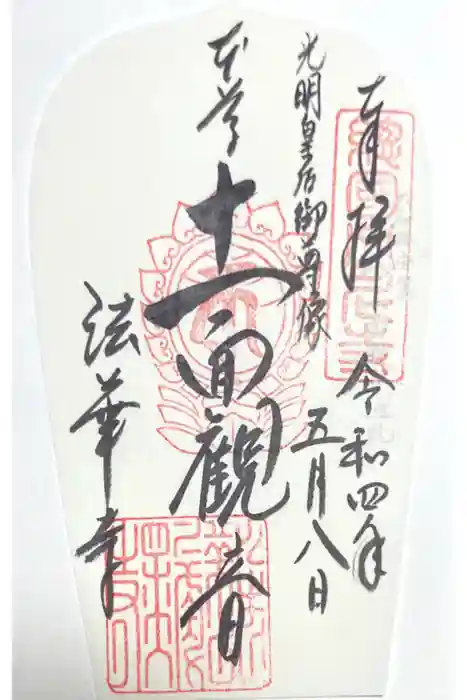 奉拝
令和四年
五月八日
光明皇后御尊像
本尊
十一面観音
法華寺